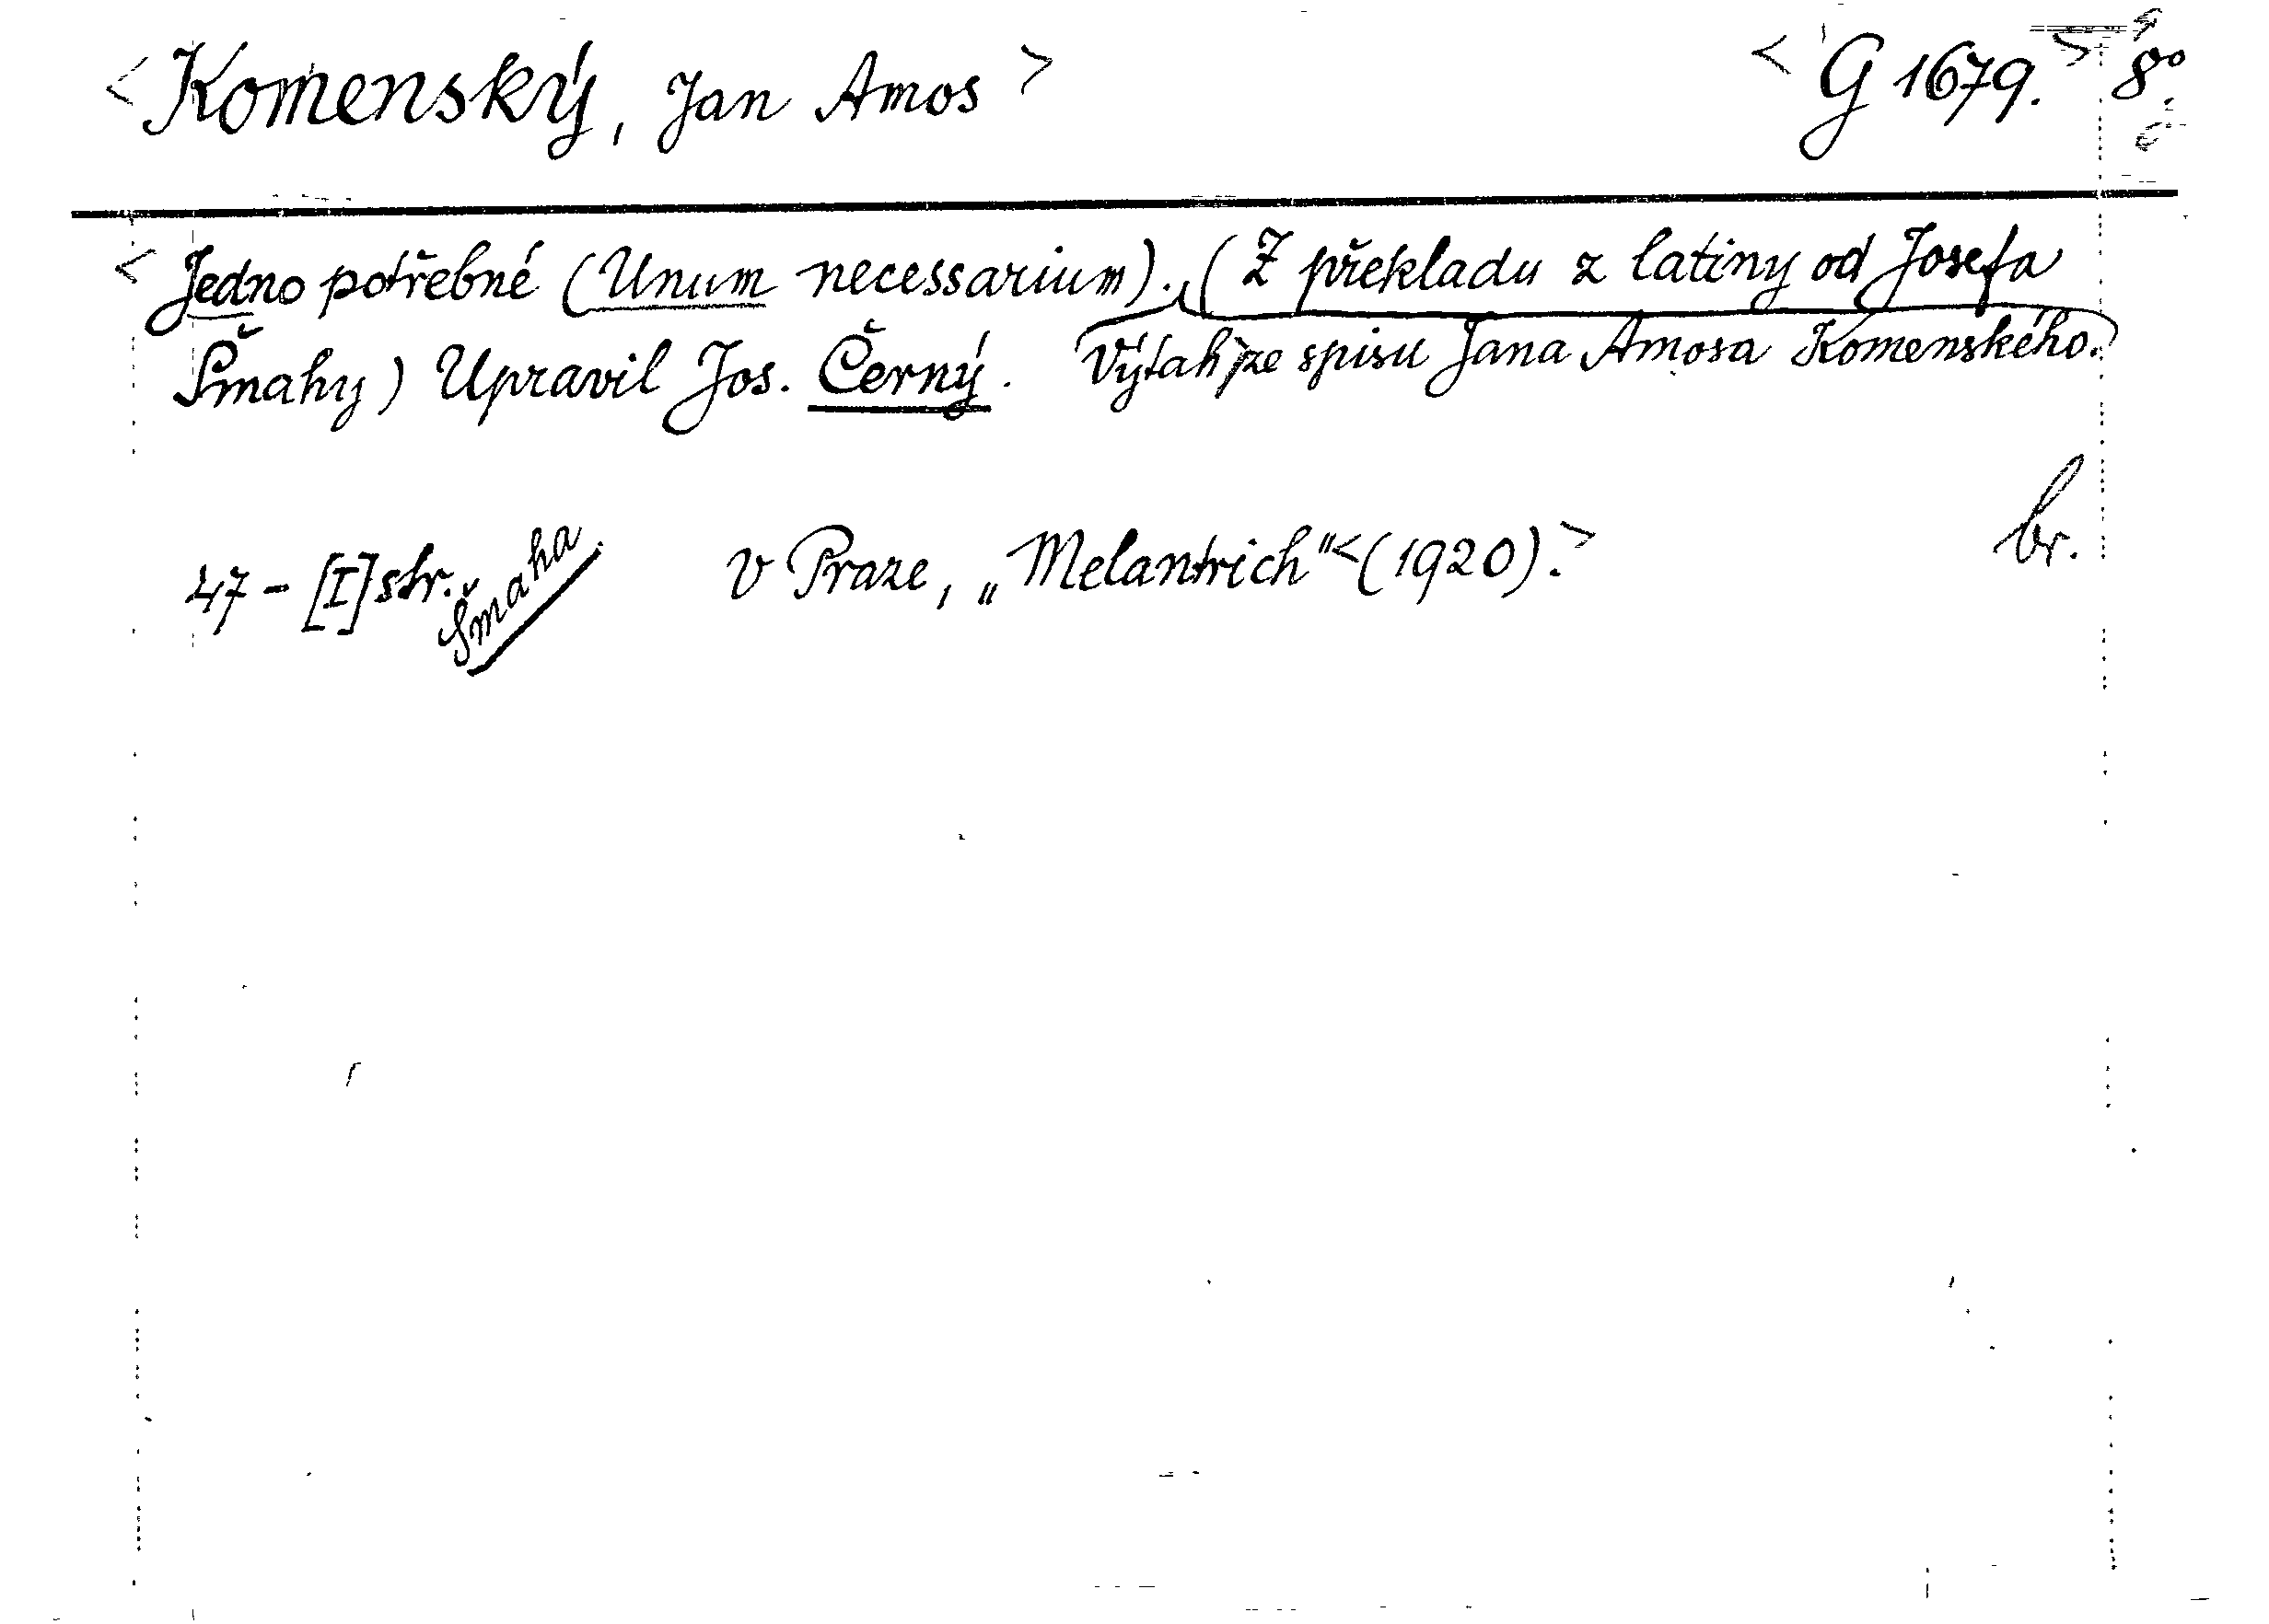 < Komenský, Jan Amos > < G 1679. > 8°
< Jedno potřebné (Unum necessarium). (Z překladu z latiny od Josefa
Šmahy) Upravil Jos. Černý. Výtah ze spisu Jana Amosa Komenského.
br.
47 - [I] str. Šmaha. V Praze, „Melantrich" < (1920). >